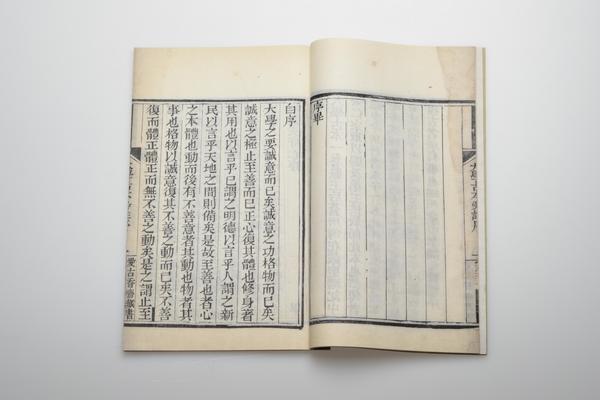 序畢
自序
大學之要誠意而已矣誠意之功格物而已矣
誠意之極止至善而已正心復其體也修身者
其用也以言乎已謂之明德以言乎人謂之新
民以言乎天地之間則備矣是故至善也者心
之本體也動而後有不善意者其動也物者其
事也格物以誠意復其不善之動而已矣不善
復而體正體正而無不善之動矣是之謂止至
愛古香齋藏書